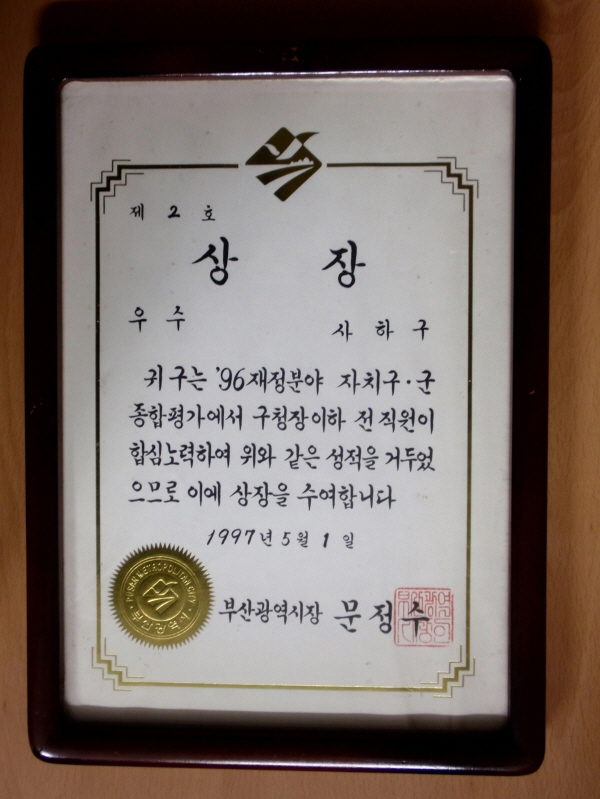 제 2 호
상 장
우 수
사 하 구
귀 구는 '96 재정분야 자치구·군
종합평가에서 구청장이하 전직원이
합심노력하여 위와 같은 성적을 거두었
으므로 이에 상장을 수여합니다
1997년 5월 1일
PUSAN METROPOLITAN CITY
부산광역시
부산광역시장 문정수